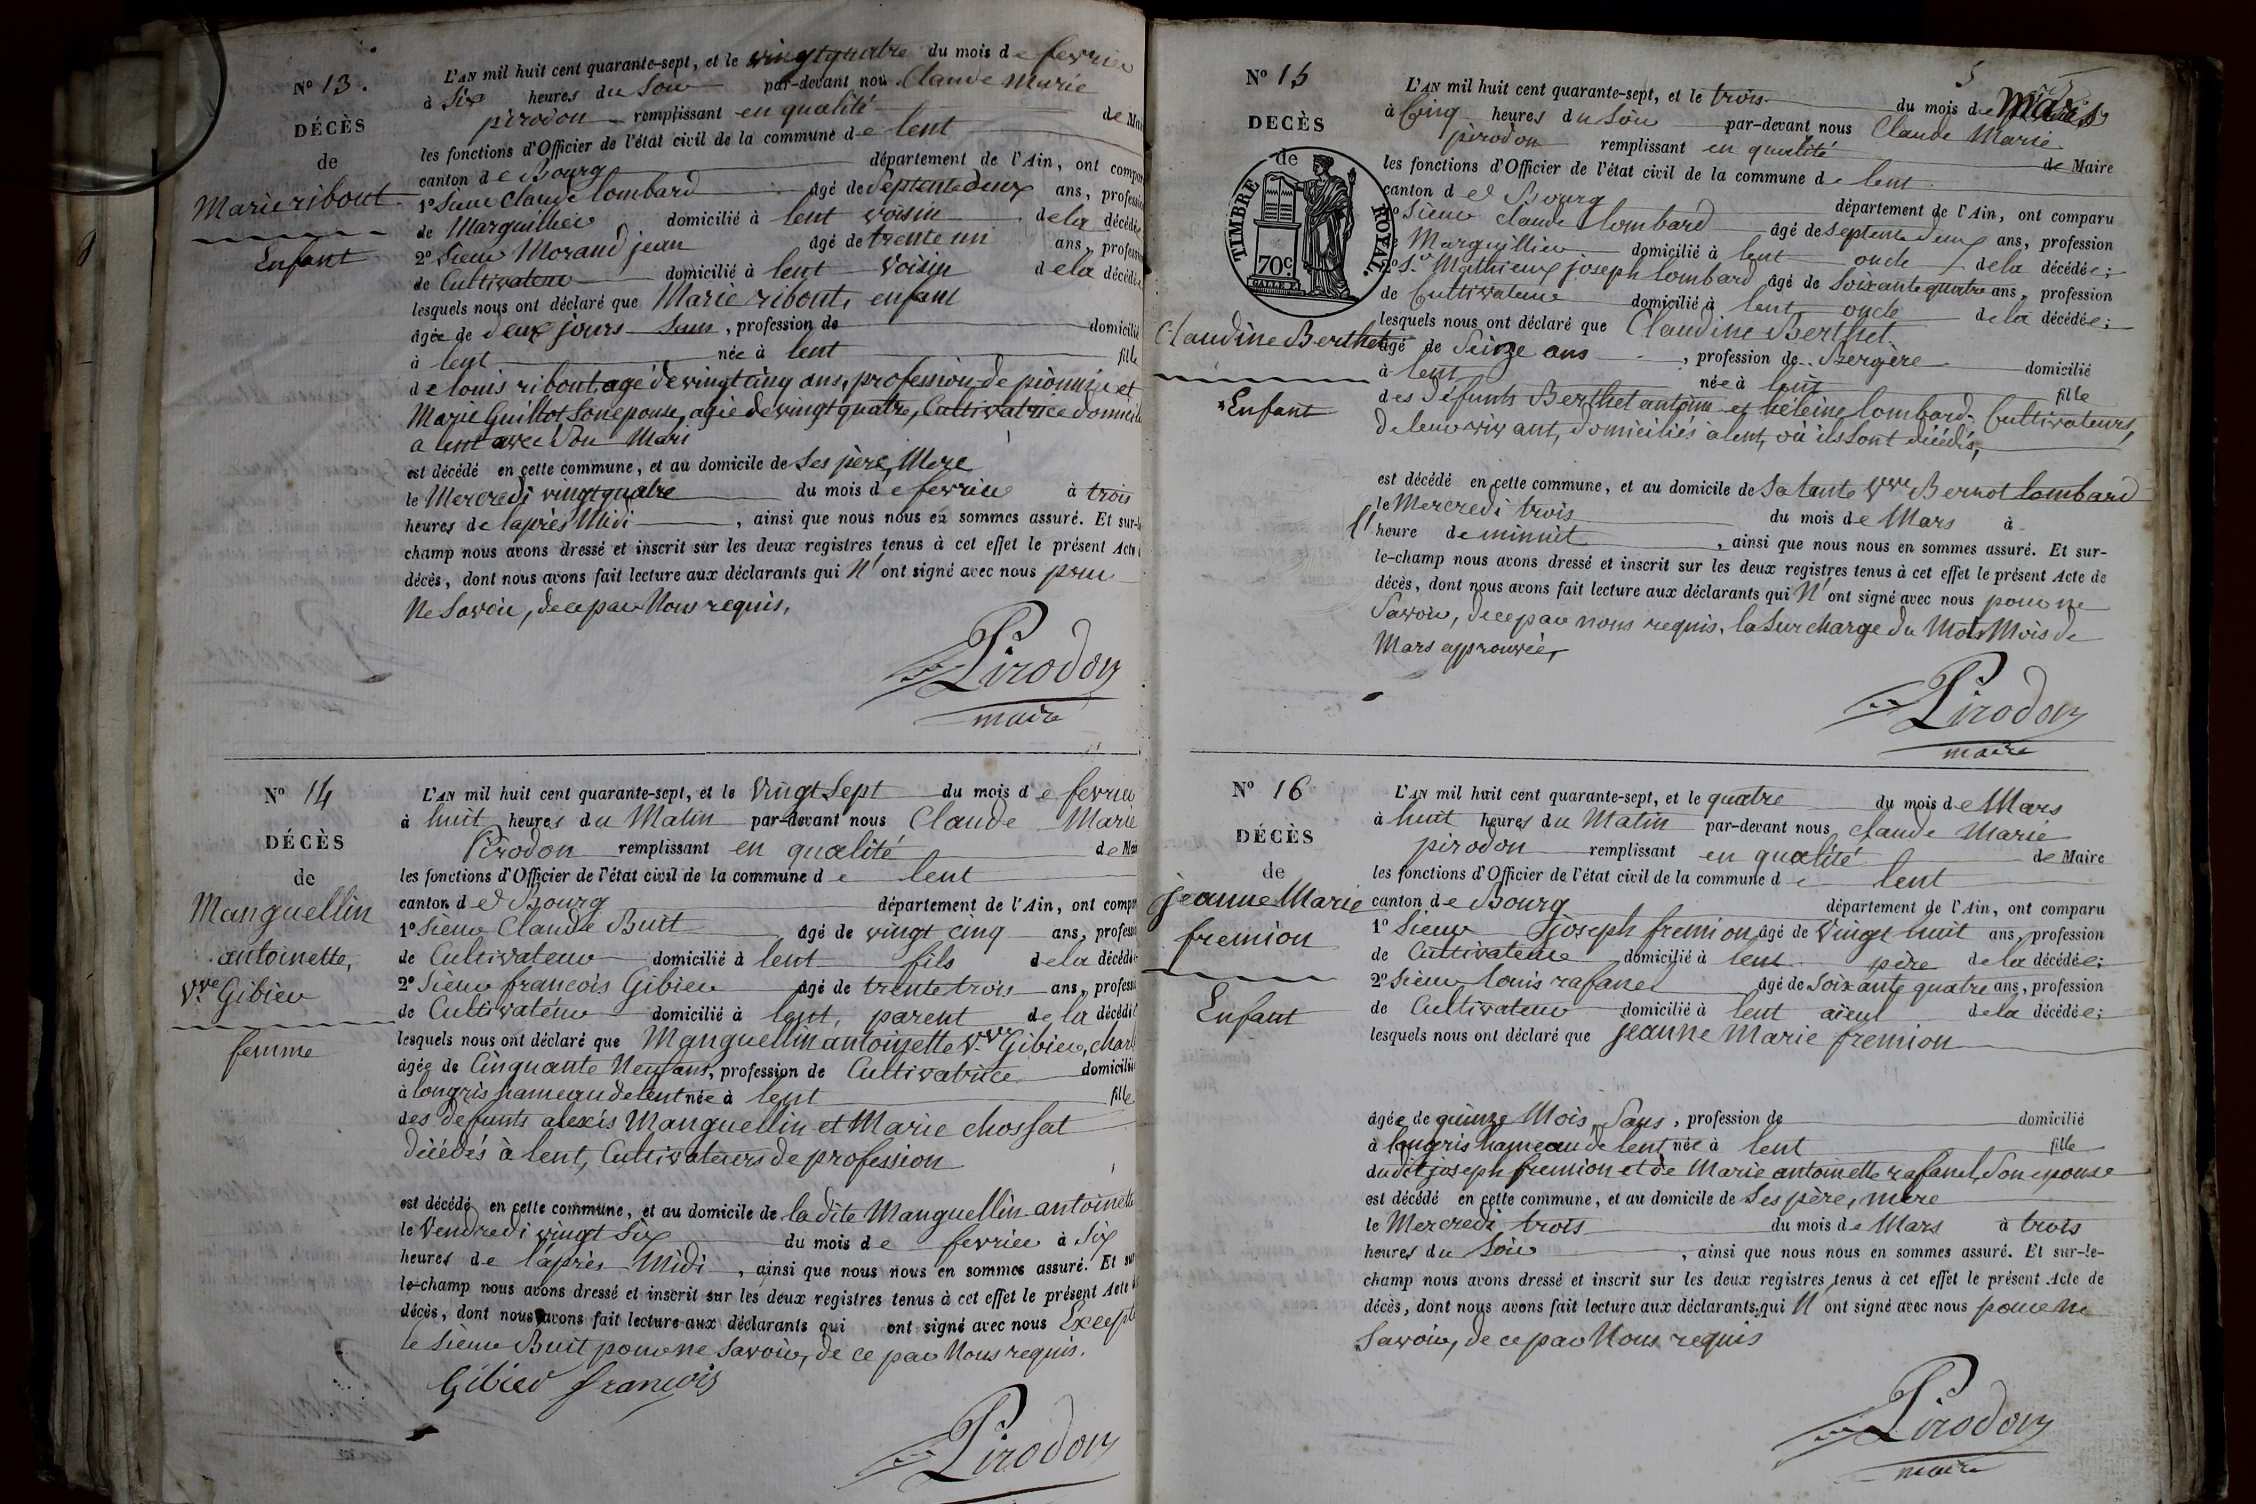 N° 13.
DÉCÈS
de
Marie ribout
Enfant
L'AN mil huit cent quarante-sept, et le vingtquatre du mois de fevrier
à Six heures du Soir par-devant nou Claude Marie
pirodon remplissant en qualité de Mai
les fonctions d'Officier de l'état civil de la commune de lent
canton de Bourg département de l'Ain, ont compar
1° Sieur Claude lombard âgé de Septente deux ans, profession
de Marguillier domicilié à lent voisin de la décédée
2° Sieur Morand jean âgé de trente un ans, profession
de Cultivateur domicilié à lent voisin de la décédée
lesquels nous ont déclaré que Marie ribout, enfant
âgée de deux jours Sans, profession de domicilié
à lent née à lent fille
de louis ribout agé de vingt cinq ans, profession de pionnier et
Marie Guillot Son epouse, agée de vingt quatre, Cultivatrice domicilié
a lent avec Son Mari
est décédé en cette commune, et au domicile de Ses père, Mere
le Mercredi vingtquatre du mois de fevrier à trois
heures de l'après Midi, ainsi que nous nous en sommes assuré. Et sur-le
champ nous avons dressé et inscrit sur les deux registres tenus à cet effet le présent Acte
décès, dont nous avons fait lecture aux déclarants qui N'ont signé avec nous pour
Ne Savoir, de ce par Nous requis.
Pirodon
maire
N° 14
DÉCÈS
de
Manguellin
antoinette,
Vve Gibier
femme
L'AN mil huit cent quarante-sept, et le Vingt Sept du mois de fevrier
à huit heures du Matin par-devant nous Claude Marie
Pirodon remplissant en qualité de Mai
les fonctions d'Officier de l'état civil de la commune de lent
canton de Bourg département de l'Ain, ont compar
1° Sieur Claude Buit âgé de vingt cinq ans, profession
de Cultivateur domicilié à lent fils de la décédée
2° Sieur francois Gibier âgé de trente trois ans, profession
de Cultivateur domicilié à lent, parent de la décédée
lesquels nous ont déclaré que Manguellin antoinette Vve Gibier, charl
âgée de Cinquante Neuf ans, profession de Cultivatrice domiciliée
à longris hameau de lent née à lent fille
des defunts alexis Manguellin et Marie chossat
décédés à lent, Cultivateurs de profession
est décédé en cette commune, et au domicile de la dite Manguellin antoinette
le Vendredi vingt Six du mois de fevrier à Six
heures de l'après Midi, ainsi que nous nous en sommes assuré. Et sur
le-champ nous avons dressé et inscrit sur les deux registres tenus à cet effet le présent Acte d
décès, dont nous avons fait lecture aux déclarants qui ont signé avec nous Excepté
le Sieur Buit pour ne Savoir, de ce par Nous requis.
Gibier françois
Pirodon
N° 15
DECÈS
de
TIMBRE ROYAL.
70c.
SALLE
Claudine Berthet
Enfant
5
L'AN mil huit cent quarante-sept, et le trois du mois de Mars
à Cinq heures du Soir par-devant nous Claude Marie
pirodon remplissant en qualité de Maire
les fonctions d'Officier de l'état civil de la commune de lent
canton de Bourg département de l'Ain, ont comparu
Sieur Claude lombard âgé de Septente deux ans, profession
Marguillier domicilié à lent oncle de la décédée;
Sr Mathieu joseph lombard âgé de Soixante quatre ans, profession
de Cultivateur domicilié à lent oncle de la décédée;
lesquels nous ont déclaré que Claudine Berthet
âgé de Seize ans, profession de Bergère domicilié
à lent née à lent fille
des défunts Berthet antoine et héleine lombard Cultivateurs,
de leur vivant, domiciliés a lent, où ils Sont décédés,
est décédé en cette commune, et au domicile de Sa tante Vve Bernot lombard
le Mercredi trois du mois de Mars à
l'heure de minuit, ainsi que nous nous en sommes assuré. Et sur-
le-champ nous avons dressé et inscrit sur les deux registres tenus à cet effet le présent Acte de
décès, dont nous avons fait lecture aux déclarants qui N'ont signé avec nous pour ne
Savoir, de ce par nous requis. la Surcharge du Mots Mois de
Mars approuvée,
Pirodon
maire
N° 16
DÉCÈS
de
jeanne Marie
fremion
Enfant
L'AN mil huit cent quarante-sept, et le quatre du mois de Mars
à huit heures du Matin par-devant nous Claude Marie
pirodon remplissant en qualité de Maire
les fonctions d'Officier de l'état civil de la commune de lent
canton de Bourg département de l'Ain, ont comparu
1° Sieur joseph fremion âgé de Vingt huit ans, profession
de Cultivateur domicilié à lent père de la décédée;
2° Sieur louis rafanel âgé de Soixante quatre ans, profession
de Cultivateur domicilié à lent aieul de la décédée;
lesquels nous ont déclaré que jeanne Marie fremion
âgée de quinze Mois, Sans, profession de domicilié
à longris hameau de lent née à lent fille
du dit joseph fremion et de Marie antoinette rafanel, Son epouse
est décédé en cette commune, et au domicile de Ses père, mere
le Mercredi trois du mois de Mars à trois
heures du Soir, ainsi que nous nous en sommes assuré. Et sur-le-
champ nous avons dressé et inscrit sur les deux registres tenus à cet effet le présent Acte de
décès, dont nous avons fait lecture aux déclarants qui N'ont signé avec nous pour ne
Savoir, de ce par Nous requis
Pirodon
maire